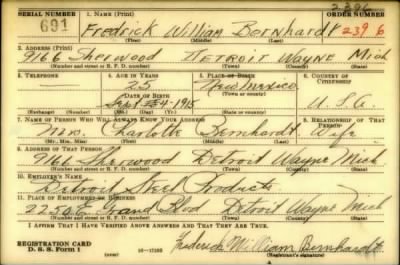 2396
SERIAL NUMBER 1. NAME (Print) ORDER NUMBER
691 Fredrick William Bernhardt 2396
(First) (Middle) (Last)
2. ADDRESS (Print)
9166 Sherwood DETROIT WAYNE Mich
(Number and street or R. F. D. number) (Town) (County) (State)
3. TELEPHONE 4. AGE IN YEARS 5. PLACE OF BIRTH 6. COUNTRY OF CITIZENSHIP
25 New Mexico
DATE OF BIRTH (Town or county)
Sept 1915 U.S.A.
(Exchange) (Number) (Mo.) (Day) (Yr.) (State or country)
7. NAME OF PERSON WHO WILL ALWAYS KNOW YOUR ADDRESS 8. RELATIONSHIP OF THAT PERSON
Mrs. Charlotte Bernhardt Wife
(Mr., Mrs., Miss) (First) (Middle) (Last)
9. ADDRESS OF THAT PERSON
9166 Sherwood Detroit Wayne Mich
(Number and street or R. F. D. number) (Town) (County) (State)
10. EMPLOYER'S NAME
Detroit Steel Products
11. PLACE OF EMPLOYMENT OR BUSINESS
2250 E. Grand Blvd Detroit Wayne Mich
(Number and street or R. F. D. number) (Town) (County) (State)
I AFFIRM THAT I HAVE VERIFIED ABOVE ANSWERS AND THAT THEY ARE TRUE.
REGISTRATION CARD
D. S. S. Form 1 (over) 16—17105 Frederick William Bernhardt
(Registrant's signature)